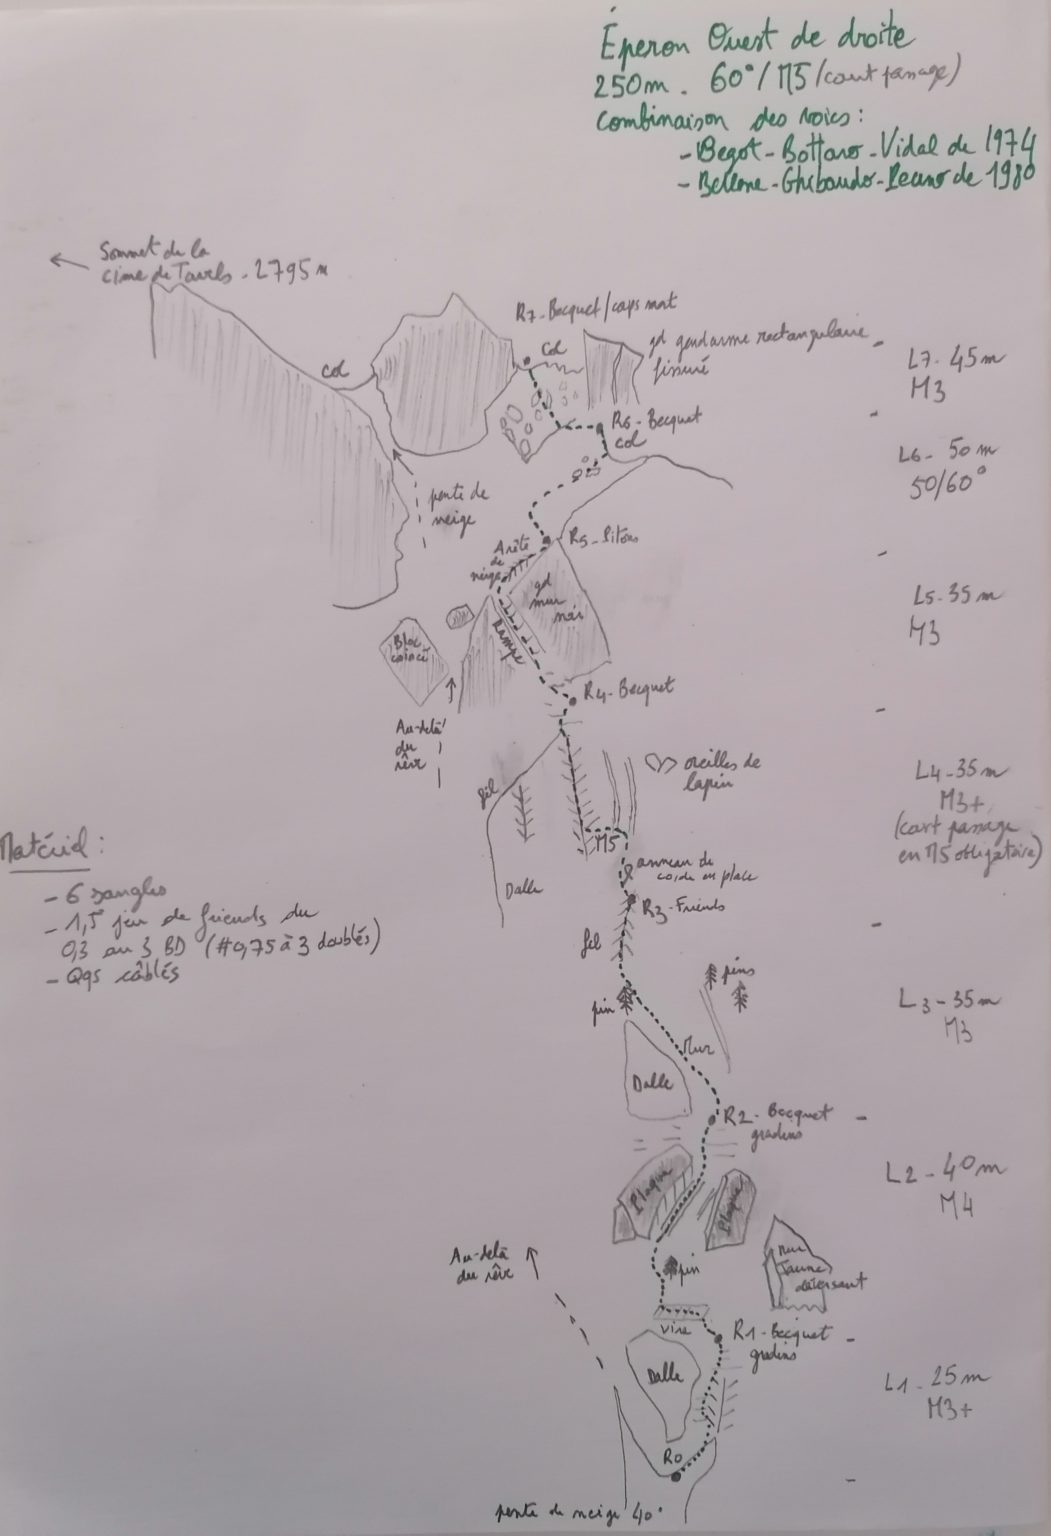 Éperon Ouest de droite
250m. 60°/M5 (court passage)
Combinaison des voies:
- Begot-Bottaro-Vidal de 1974
- Bellone-Ghibaudo-Peano de 1980
Sommet de la
cime de Tavels. 2795m
R7-Becquet/caps mat
col
Col
gd gendarme rectangulaire
fissuré
L7-45m
M3
R6-Becquet
col
L6-50m
50/60°
pente de
neige
Arête
de
neige
R5-Pitons
gd
mur
noir
L5-35m
M3
Rampe
Bloc
coincé
R4-Becquet
Au-delà
du
rêve
oreilles de
lapin
L4-35m
M3+
(court passage
en M5 obligatoire)
fil
M5
anneau de
corde en place
Dalle
R3-Friends
Matériel:
- 6 sangles
- 1,5 jeu de friends du
0,3 au 3 BD (#0,75 à 3 doublés)
- Qqs câblés
fil
pins
pin
L3-35m
M3
Mur
Dalle
R2-Becquet
gradins
L2-40m
M4
Plaque
Plaque
Au-delà
du rêve
pin
mur
Jaune
déversant
vire
R1-Becquet
gradins
Dalle
L1-25m
M3+
R0
pente de neige 40°